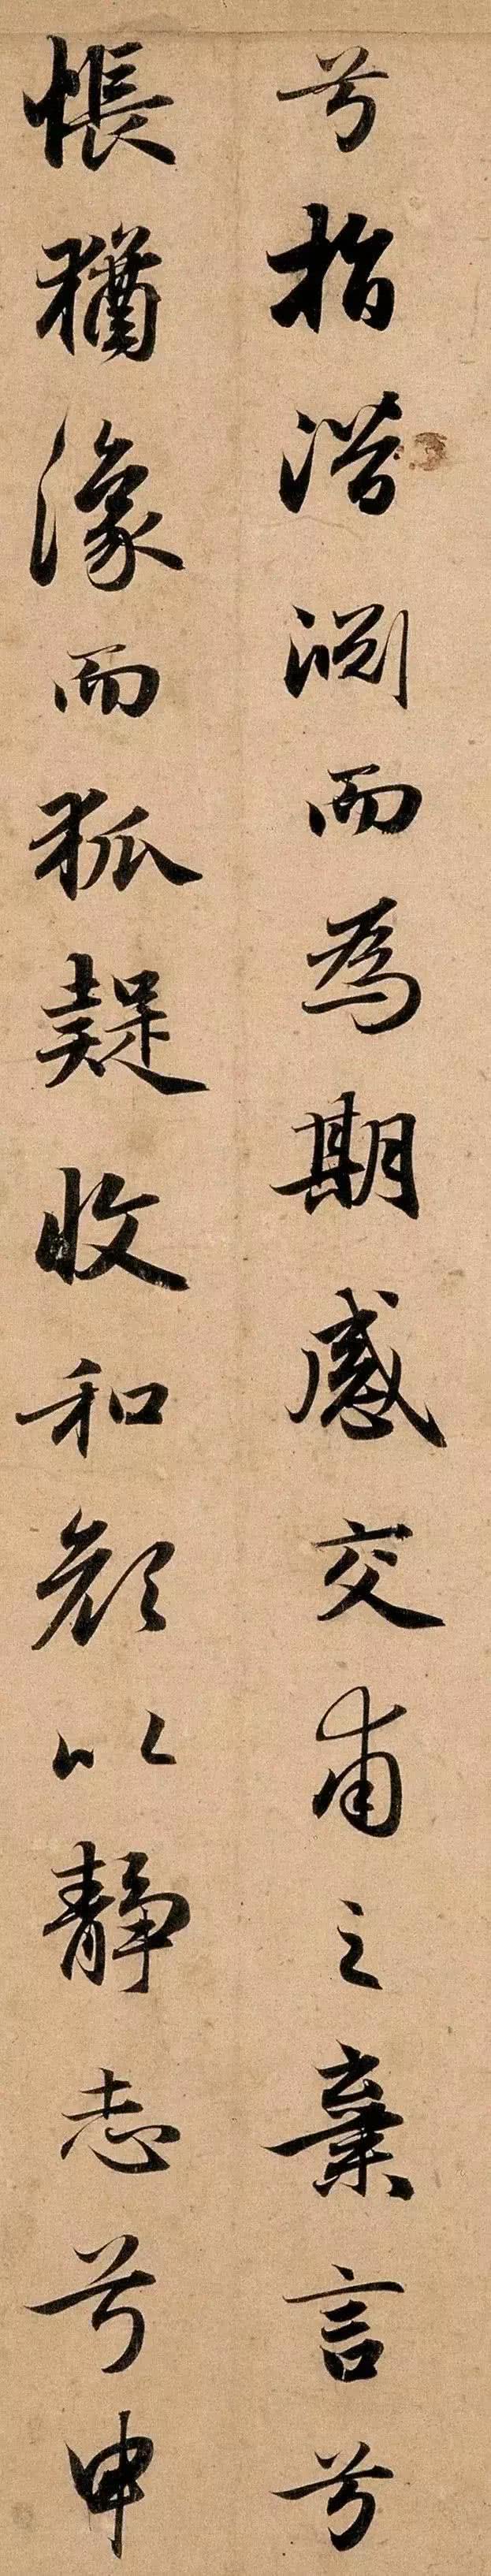 兮指潛淵而為期感交甫之棄言兮
悵猶㺄而狐疑收和顏以静志兮申